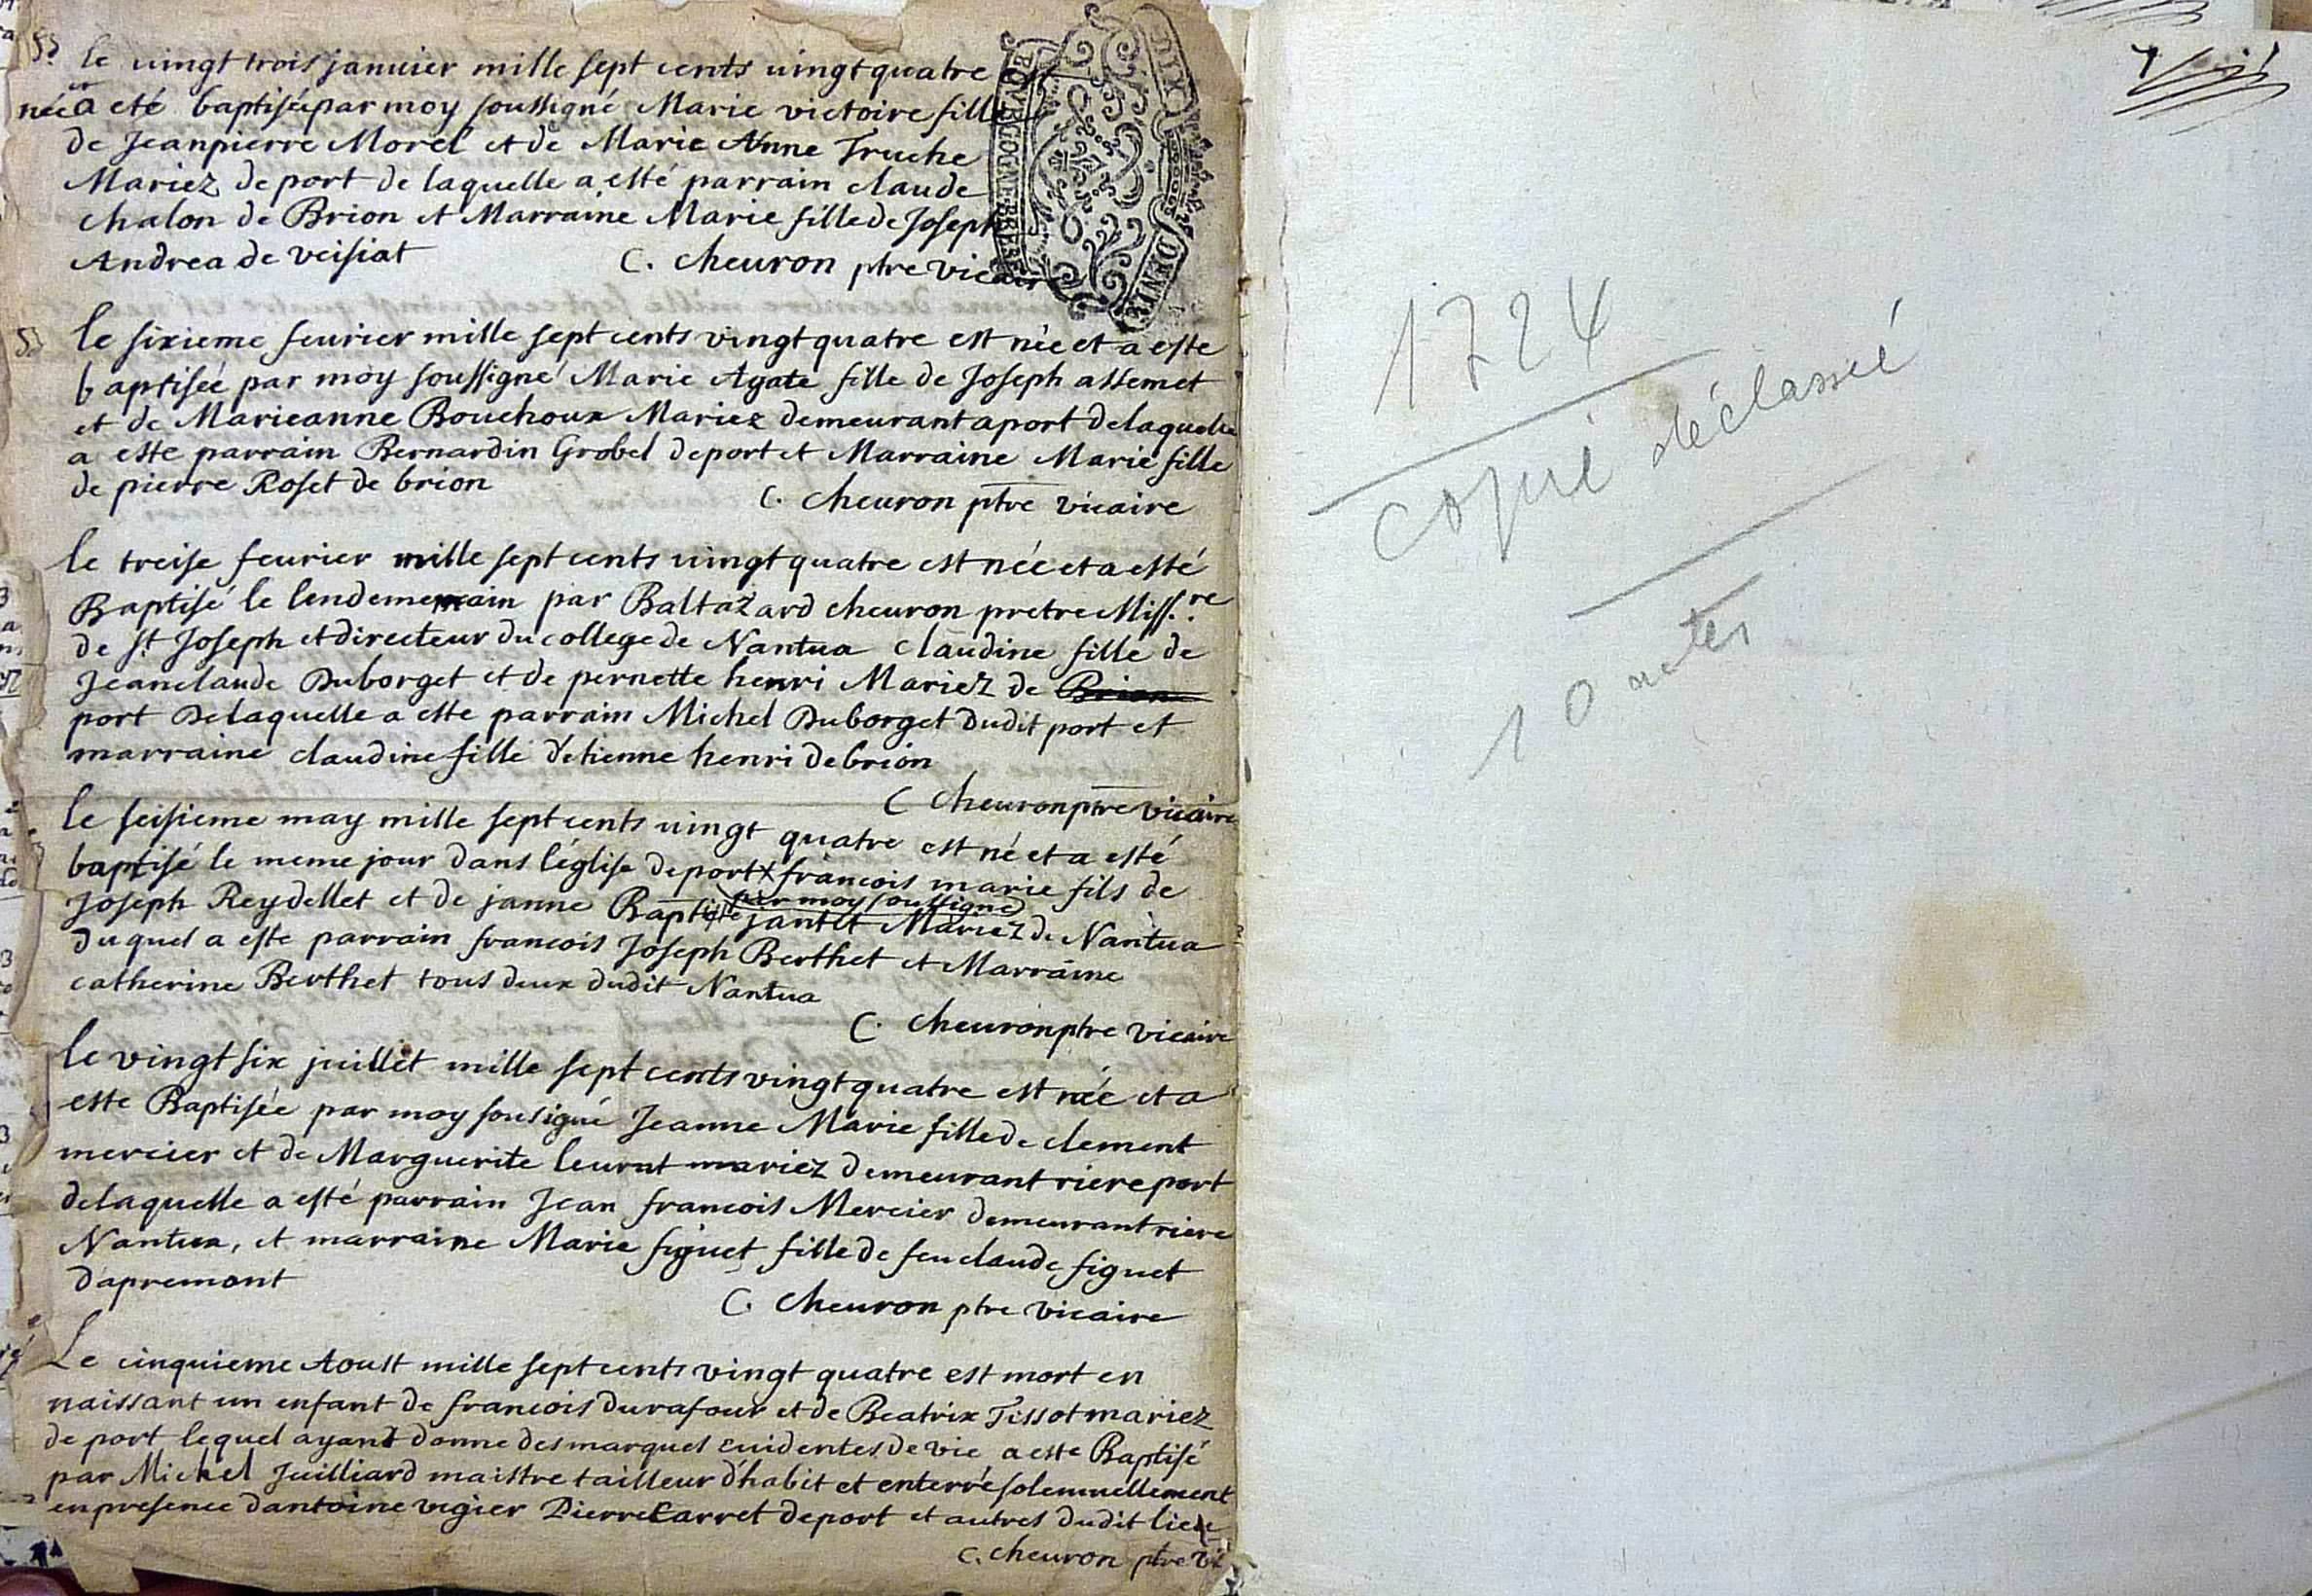 le vingt trois janvier mille sept cents vingt quatre est
née et a eté baptisée par moy soussigné Marie victoire fille
de Jeanpierre Morel et de Marie Anne Truche
Mariez de port de laquelle a esté parrain claude
chalon de Brion et Marraine Marie fille de Joseph
Andrea de veisiat
C. cheuron ptre vicaire
le sixieme feurier mille sept cents vingt quatre est née et a este
baptiseé par moy soussigné Marie Agate fille de Joseph assemet
et de Marieanne Bouchoux Mariez demeurant a port de laquelle
a este parrain Bernardin Grobel de port et Marraine Marie fille
de pierre Roset de brion
C. cheuron ptre vicaire
le treise feurier mille sept cents vingt quatre est née et a esté
Baptisé le lendemain par Baltazard cheuron pretre Miss.re
de St Joseph et directeur du college de Nantua claudine fille de
Jeanclaude Duborget et de pernette henri Mariez de Brion
port de laquelle a este parrain Michel Duborget dudit port et
marraine claudine fille d'etienne henri de brion
C cheuron ptre vicaire
le seisieme may mille sept cents vingt quatre est né et a esté
baptisé le meme jour dans l'église de port x françois marie fils de
par moy soussigné
Joseph Reydellet et de janne Baptiste jantet Mariez de Nantua
duquel a este parrain francois Joseph Berthet et Marraine
catherine Berthet tous deux dudit Nantua
C. cheuron ptre vicaire
le vingt six juillet mille sept cents vingt quatre est née et a
este Baptisée par moy sousigné Jeanne Marie fille de clement
mercier et de Marguerite leurat mariez demeurant riere port
de laquelle a esté parrain Jean francois Mercier demeurant riere
Nantua, et marraine Marie figuet fille de feu claude figuet
dapremont
C. cheuron ptre vicaire
Le cinquieme Aoust mille sept cents vingt quatre est mort en
naissant un enfant de francois durafour et de Beatrix Tissot mariez
de port lequel ayant donne des marques euidentes de vie a este Baptisé
par Michel Juilliard maistre tailleur d'habit et enterré solemnellement
en presence dantoine vigier Pierre Carret de port et autres dudit lieu
C. cheuron ptre vi
1724
copié déclassé
10 actes